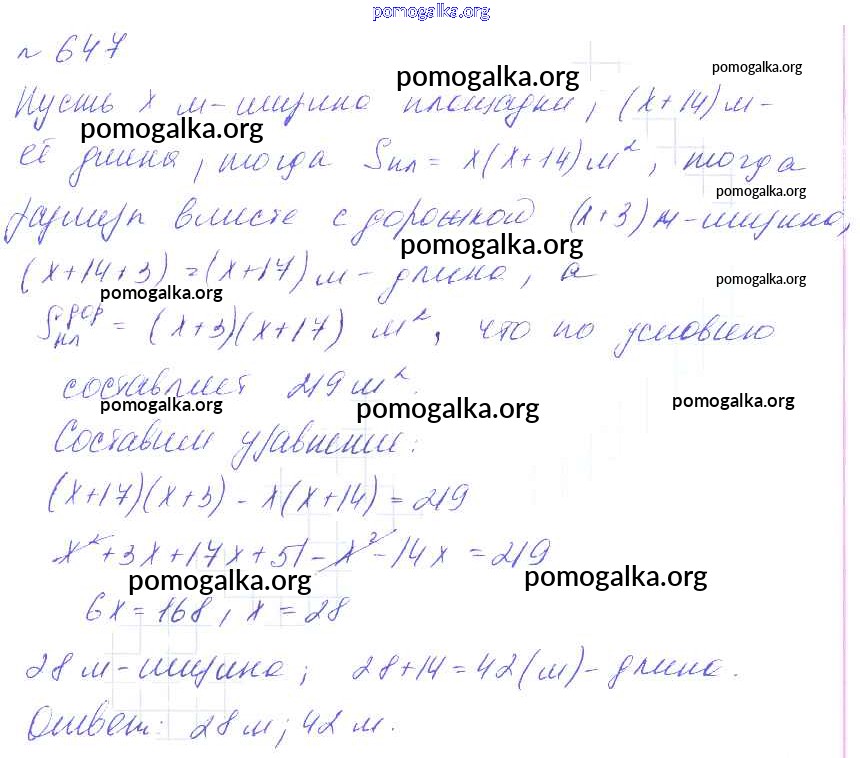 pomogalka.org
№ 647
pomogalka.org pomogalka.org
Пусть x м-ширина площадки, (x+14) м-
pomogalka.org
её длина, тогда Sпл = x(x+14) м², тогда
pomogalka.org
размеры вместе с дорожкой (x+3) м-ширина,
pomogalka.org
(x+14+3) = (x+17) м- длина, а
pomogalka.org pomogalka.org
Sпл дор = (x+3)(x+17) м², что по условию
составляет 219 м².
pomogalka.org pomogalka.org pomogalka.org
Составим уравнение:
(x+17)(x+3) - x(x+14) = 219
x² + 3x + 17x + 51 - x² - 14x = 219
pomogalka.org pomogalka.org
6x = 168, x = 28
28 м-ширина; 28+14 = 42 (м)- длина.
Ответ: 28 м; 42 м.